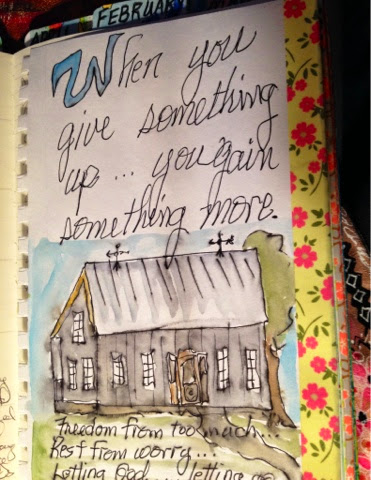 FEBRUARY
When you
give something
up... you gain
something more.
Freedom from too much...
Rest from worry...
Letting God... letting go